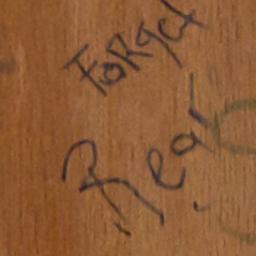 Forget
Rear